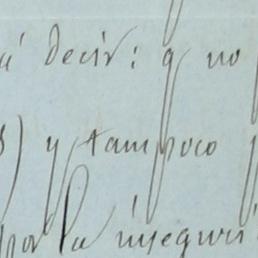 á decir: q no
) y tampoco
por la inseguri